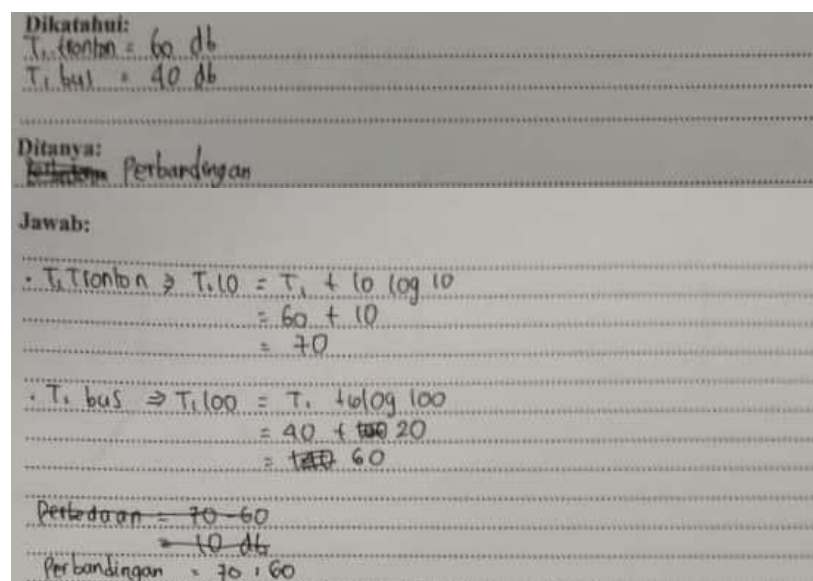 Dikatahui:
T₁ tronton = 60 db
T₁ bus = 40 db
Ditanya:
Perbandingan
Jawab:
· T₁ Tronton ⇒ T₁ 10 = T₁ + 10 log 10
= 60 + 10
= 70
· T₁ bus ⇒ T₁ 100 = T₁ + 10 log 100
= 40 + 20
= 60
Perbedaan = 70 - 60
= 10 db
Perbandingan = 70 : 60